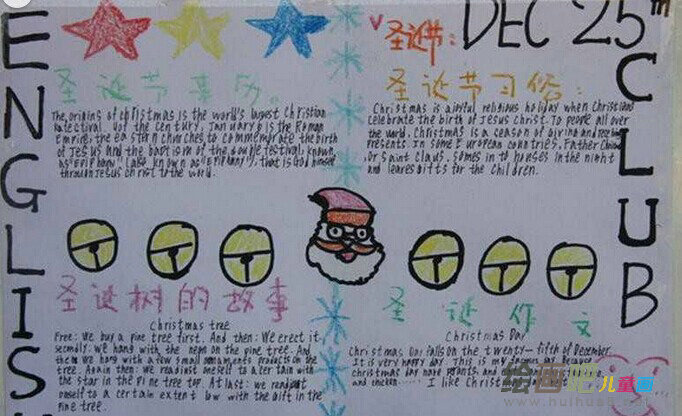 ENGLISH
圣诞节:DEC 25th
CLUB
圣诞节来历。
The origins of christmas is the world's largest Christian
of the century, January 6 is the Roman
Empire; the eastern churches, to commemorate the birth
of Jesus and the baptism of the double festival, known
as "Epiphany" (also known as "Epiphany"), that is God himself
through Jesus christ to the world.
圣诞节习俗:
Christmas is a joyful religious holiday when Christians
celebrate the birth of Jesus Christ. To people all over
the world, Christmas is a season of giving and
presents. In some European countries, Father Christmas
Or Saint Claus, comes in to houses in the night
and leaves gifts for the children.
圣诞树的故事
Christmas tree
Free: We buy a pine tree first. And then: We erect it
secondly: we hang with the neon on the pine tree. And
then we hang with a few small ornaments on the
tree. Again then: We readjust oneself to a certain with
the star in the pine tree top. At last: we readjust
oneself to a certain extent low with the gift in the
pine tree.
圣诞作文
Christmas Day
Christmas Day falls on the twenty-fifth of December.
It is very happy day. This is my
christmas day have
and chicken...... I like Christmas
绘画吧儿童画
www.huihua8.